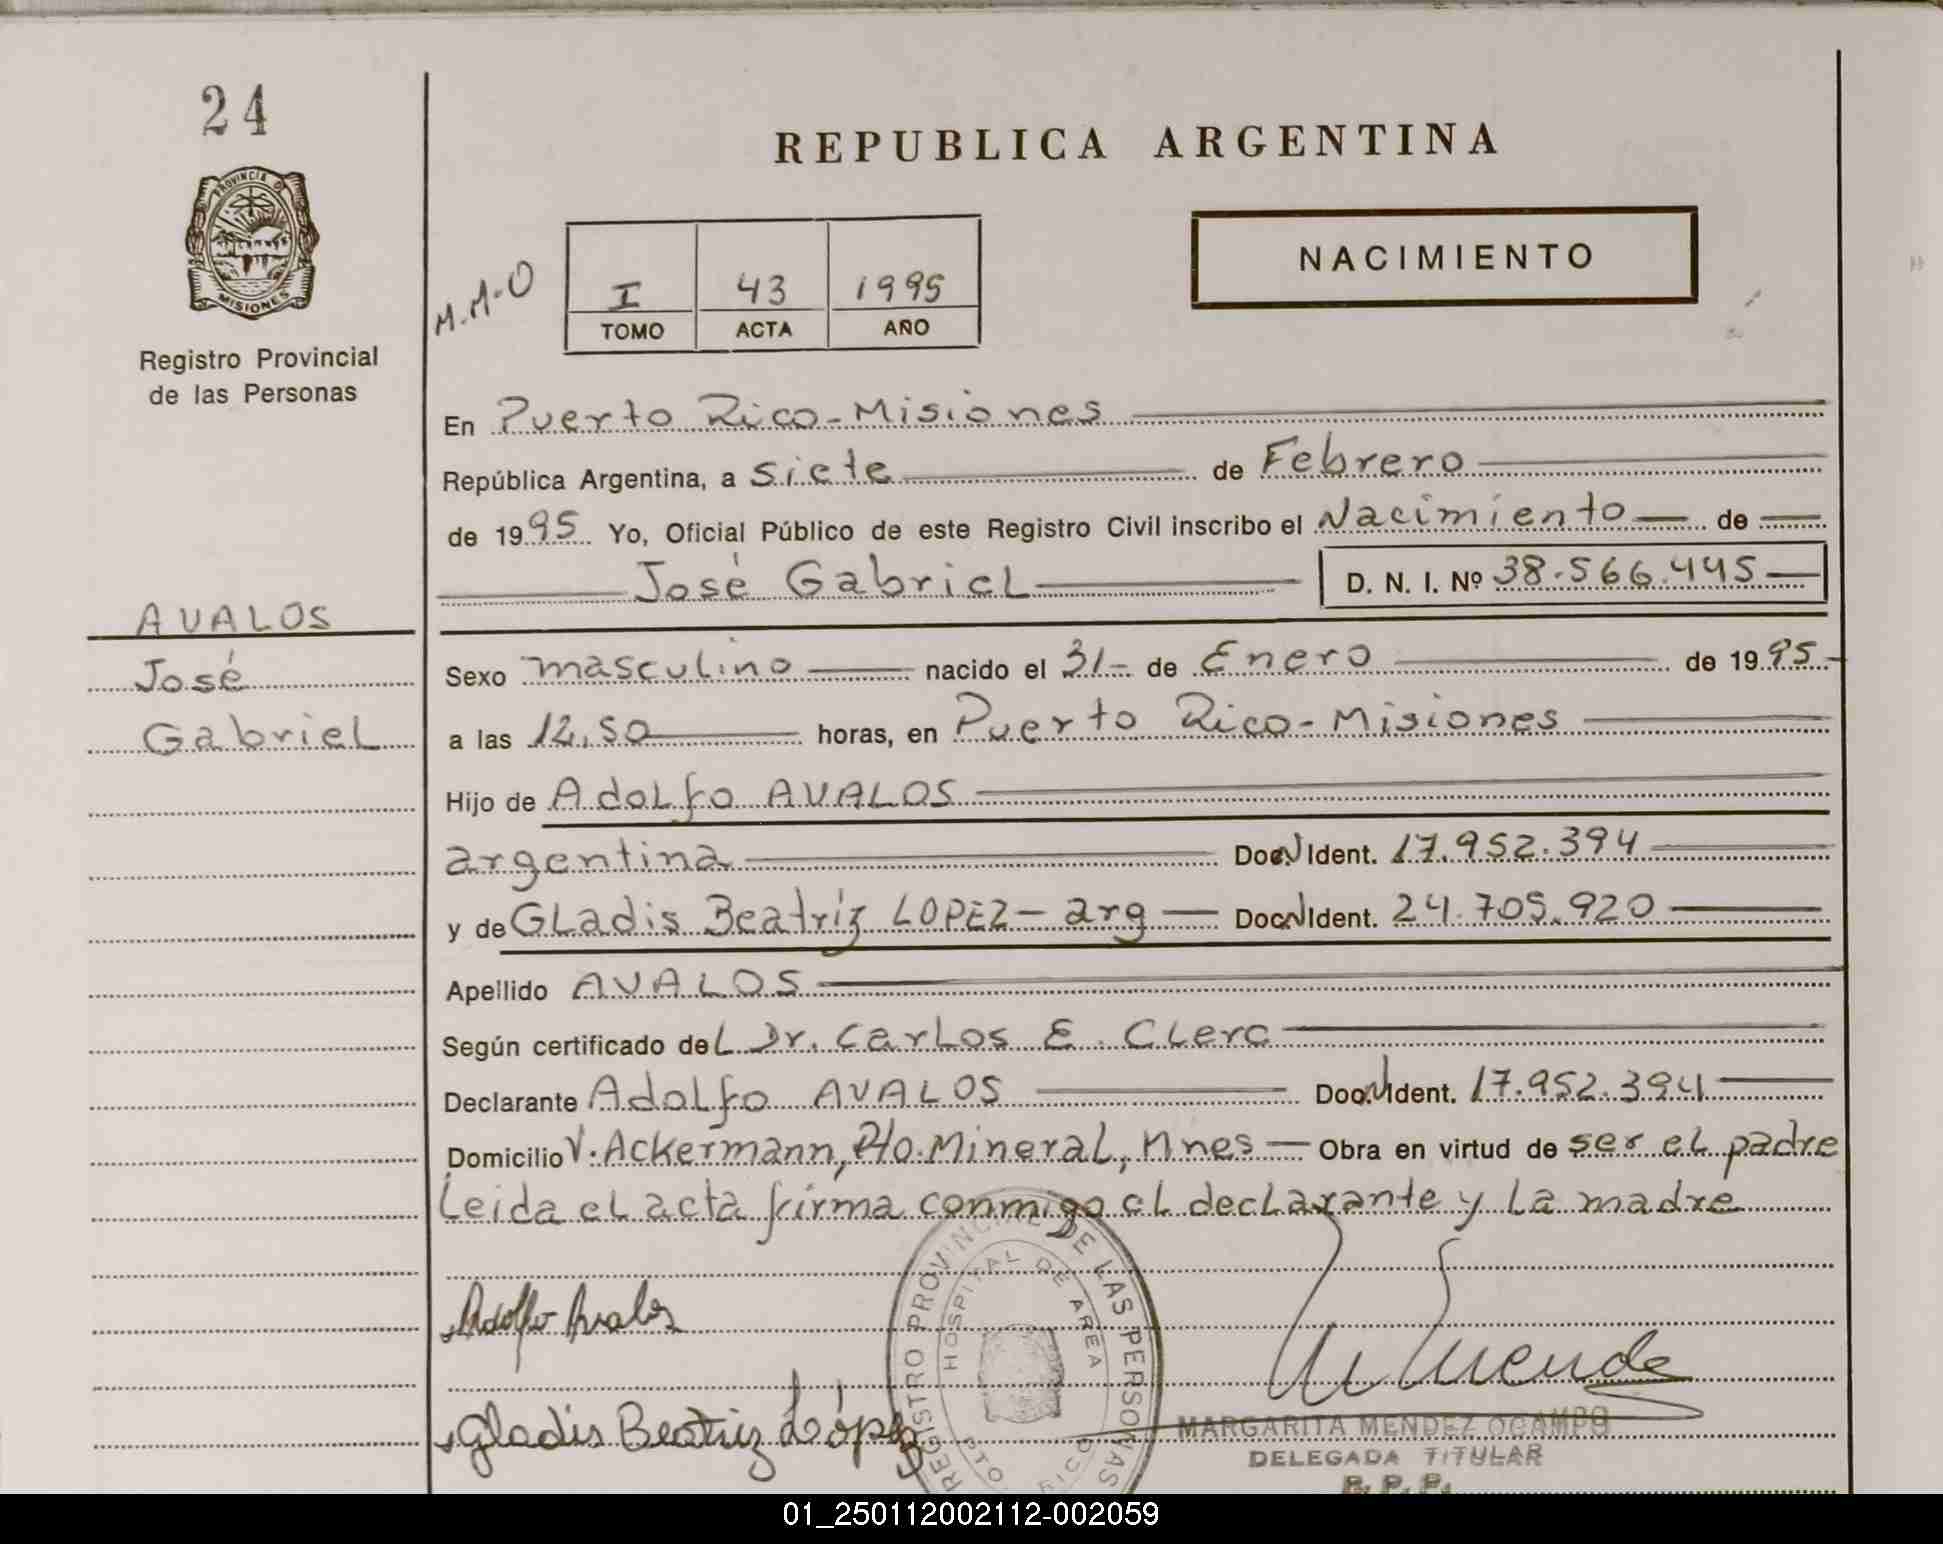 24
PROVINCIA DE
MISIONES
Registro Provincial
de las Personas
REPUBLICA ARGENTINA
NACIMIENTO
M.M.O
I 43 1995
TOMO ACTA AÑO
En Puerto Rico-Misiones
República Argentina, a siete de Febrero
de 1995 Yo, Oficial Público de este Registro Civil inscribo el Nacimiento de
José Gabriel D. N. I. Nº 38.566.445
AVALOS
José
Gabriel
Sexo masculino nacido el 31- de Enero de 1995
a las 12,50 horas, en Puerto Rico-Misiones
Hijo de Adolfo AVALOS
argentina Doc. Ident. 17.952.394
y de Gladis Beatriz LOPEZ- arg Doc. Ident. 24.705.920
Apellido AVALOS
Según certificado del Dr. Carlos E. Clerc
Declarante Adolfo AVALOS Doc. Ident. 17.952.394
Domicilio V. Ackermann, Pto. Mineral, Mnes Obra en virtud de ser el padre
Leida el acta firma conmigo el declarante y la madre
Adolfo Avalos
Gladis Beatriz López
REGISTRO PROVINCIAL DE LAS PERSONAS
HOSPITAL DE AREA
PTO. RICO
MARGARITA MENDEZ OCAMPO
DELEGADA TITULAR
R. P. P.
01_250112002112-002059